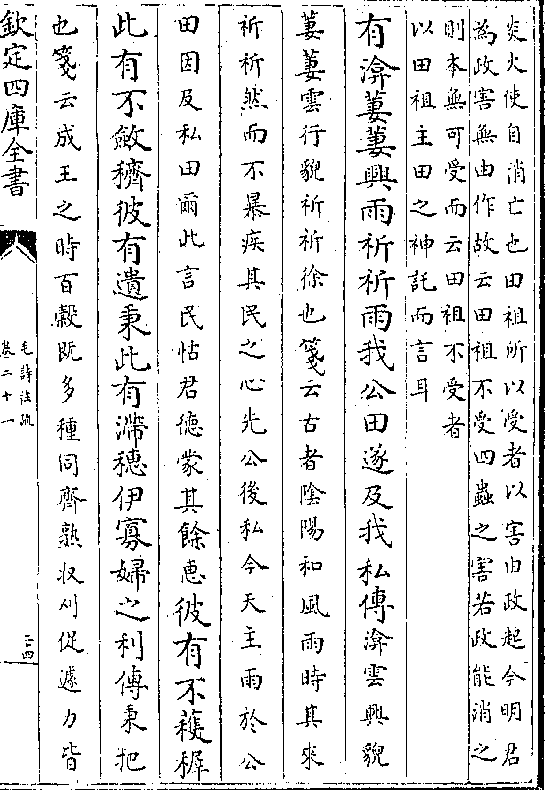 炎火使自消亡也田祖所以受者以害由政起今明君
為政害無由作故云田祖不受四蟲之害若政能消之
則本無可受而云田祖不受者
以田祖主田之神託而言耳
有渰萋萋興雨祈祈雨我公田遂及我私傳渰雲興貌
萋萋雲行貌祈祈徐也箋云古者陰陽和風雨時其來
祈祈然而不暴疾其民之心先公後私今天主雨於公
田因及私田爾此言民怙君德蒙其餘惠彼有不穫穉
此有不斂穧彼有遺秉此有滯穗伊寡婦之利傳秉把
也箋云成王之時百穀既多種同齊熟收刈促遽力皆
欽定四庫全書
毛詩注疏
卷二十一
二四